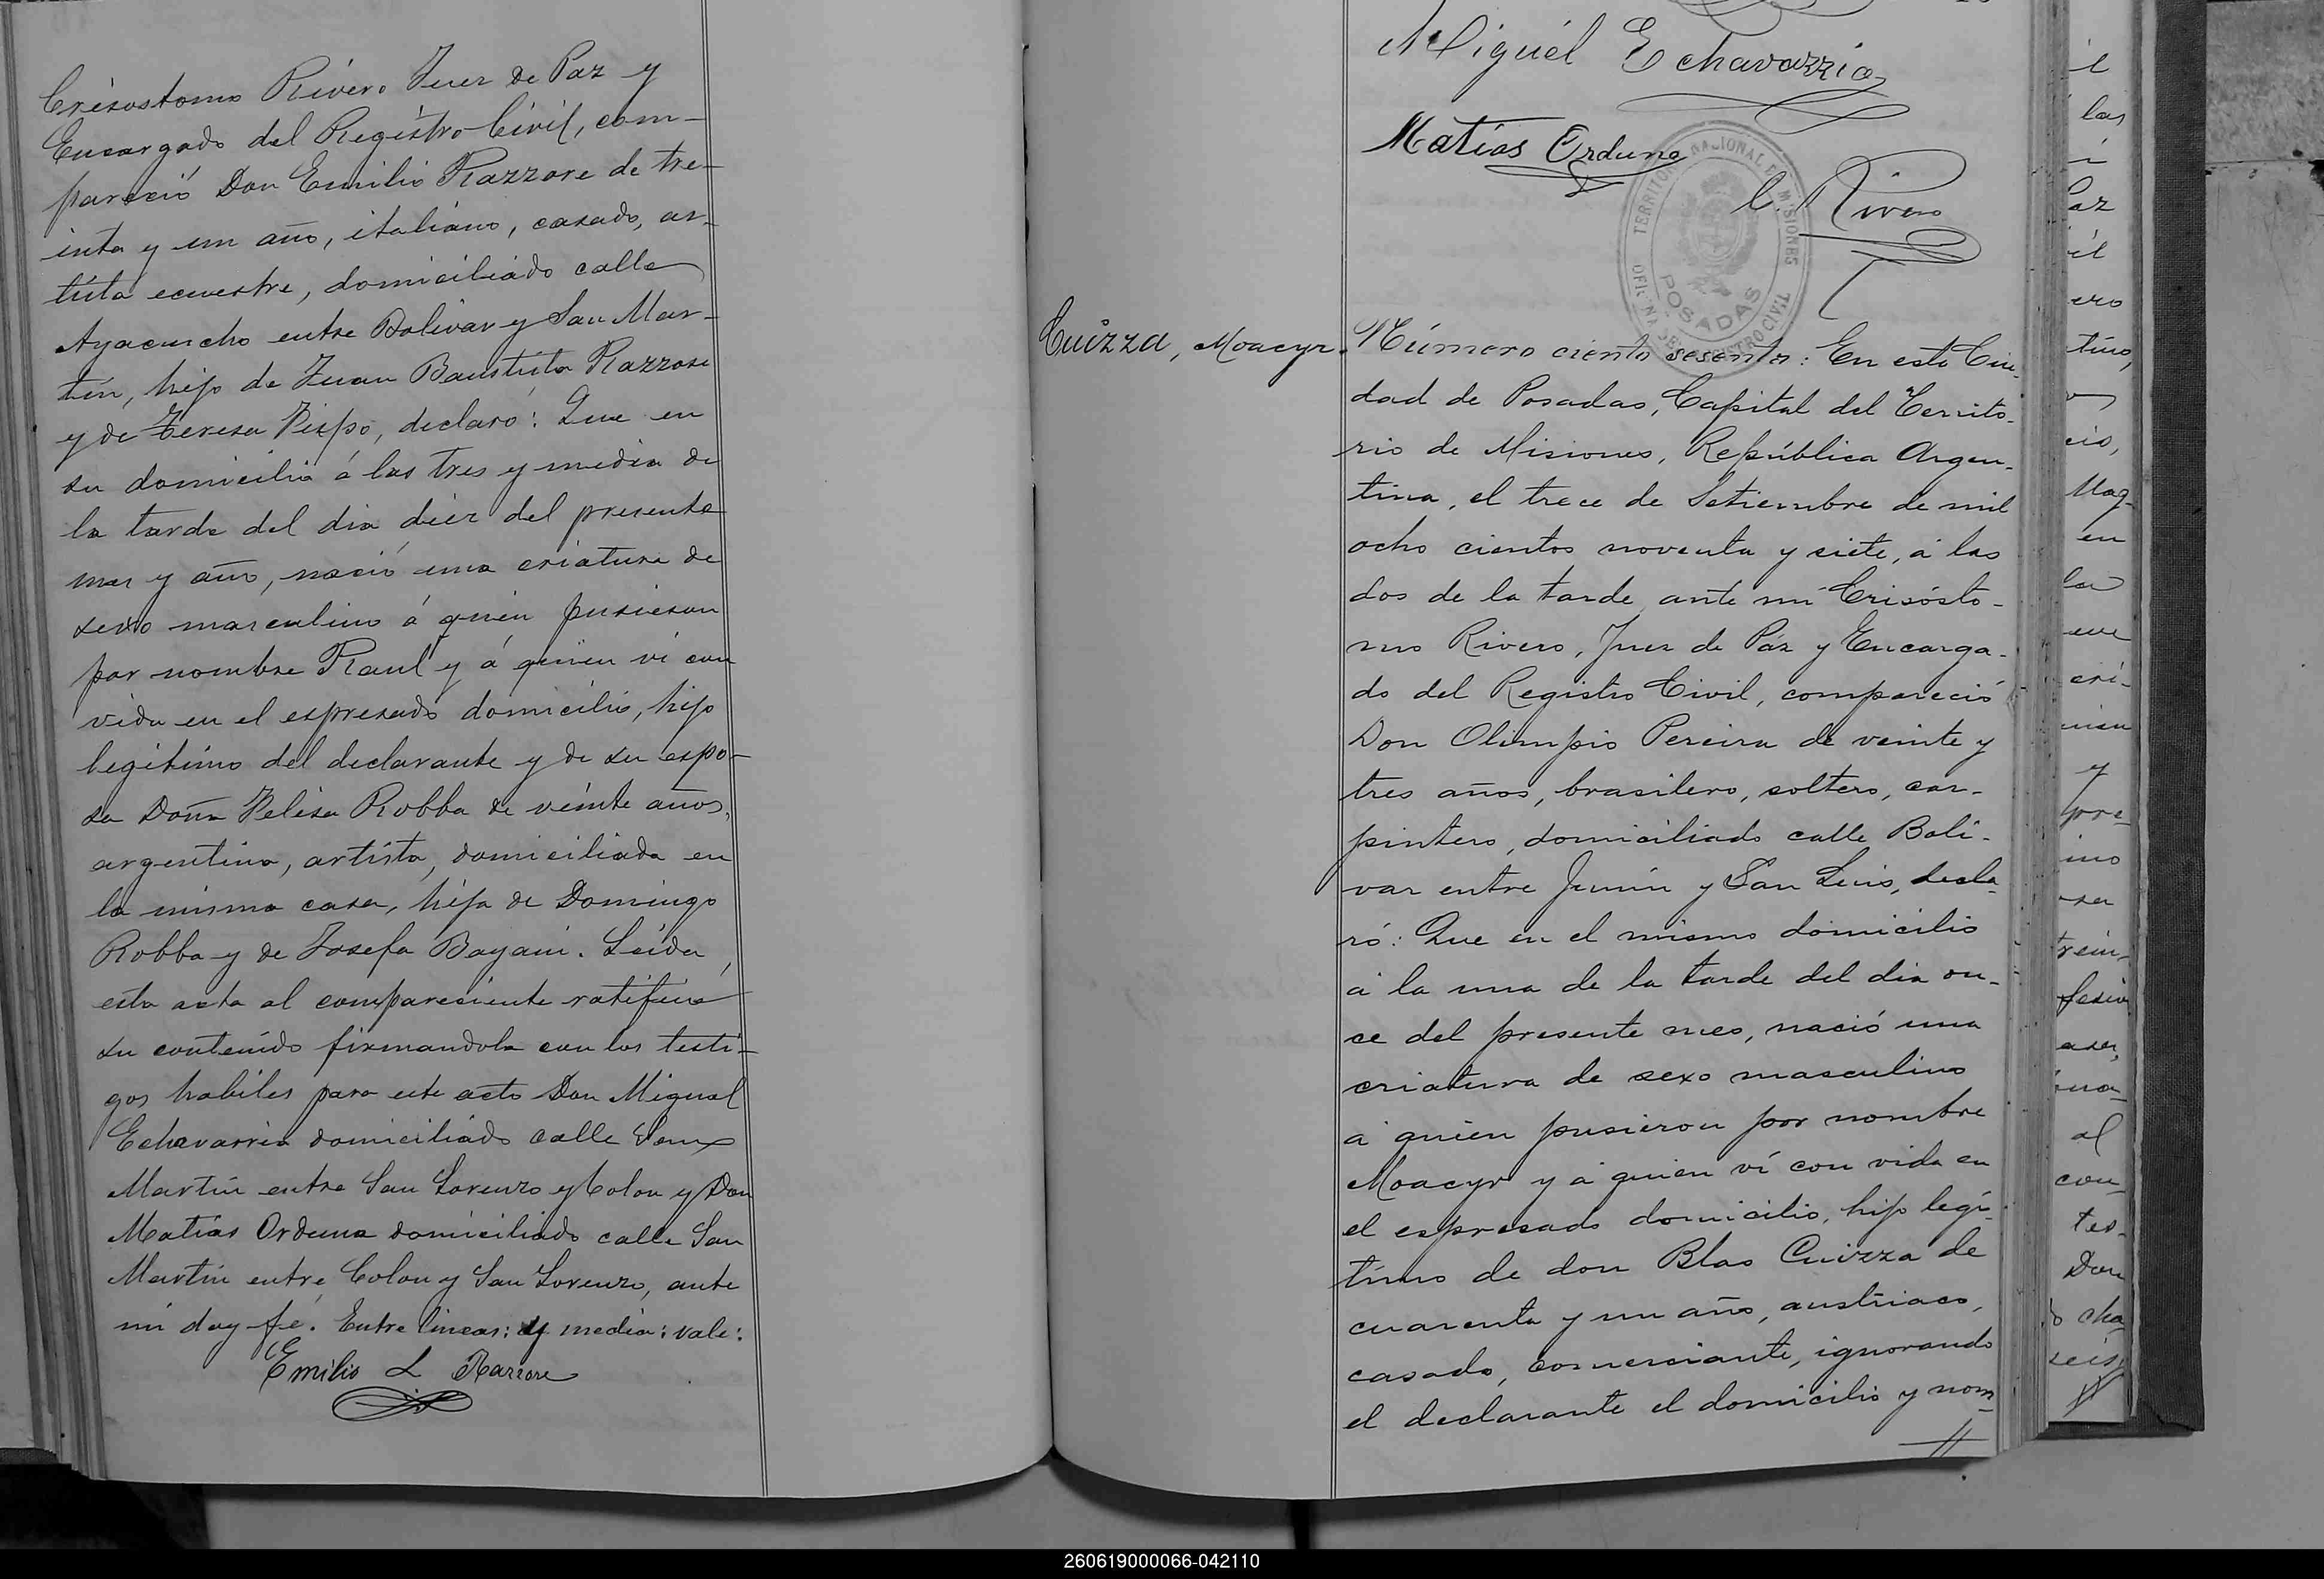 Crisostomo Rivero Juez de Paz y
Encargado del Registro Civil, com-
pareció Don Emilio Razzore de tre-
inta y un año, italiano, casado, ar-
tista ecuestre, domiciliado calle
Ayacucho entre Bolivar y San Mar-
tin, hijo de Juan Bautista Razzore
y de Teresa, declaró: Que en
su domicilio á las tres y media de
la tarde del dia diez del presente
mes y año, nació una criatura de
sexo masculino á quien pusieron
por nombre Raul y á quien vi con
vida en el espresado domicilio, hijo
legitimo del declarante y de su espo-
sa Doña Felisa Robba de veinte años,
argentina, artista, domiciliada en
la misma casa, hija de Domingo
Robba y de Josefa Bayani. Leida
esta acta al compareciente ratificó
su contenido firmandola con los testi-
gos habiles para este acto Don Miguel
Echavarria domiciliado calle San
Martin entre San Lorenzo y Colon y Don
Matias Orduna domiciliado calle San
Martin entre Colon y San Lorenzo, ante
mi doy fé. Entre lineas: y media: vale:
Emilio L Razzore
Miguel Echavarria
Matías Orduna
C. Rivero
TERRITORIO NACIONAL DE MISIONES
OFICINA DEL REGISTRO CIVIL
POSADAS
Cuizza, Moacyr.
Número ciento sesenta: En esta Ciu-
dad de Posadas, Capital del Territo-
rio de Misiones, República Argen-
tina, el trece de Setiembre de mil
ocho cientos noventa y siete, á las
dos de la tarde, ante mi Crisósto-
mo Rivero, Juez de Páz y Encarga-
do del Registro Civil, compareció
Don Olimpio Pereira de veinte y
tres años, brasilero, soltero, car-
pintero, domiciliado calle Boli-
var entre Junin y San Luis, decla-
ró: Que en el mismo domicilio
á la una de la tarde del dia on-
ce del presente mes, nació una
criatura de sexo masculino
á quien pusieron por nombre
Moacyr y á quien ví con vida en
el espresado domicilio, hijo legi-
timo de don Blas Cuizza de
cuarenta y un año, austriaco,
casado, comerciante, ignorando
el declarante el domicilio y nom-
il
las
Paz
il
ero
tino,
cio,
Mag-
en
la
eve
cri-
y
pre-
ino
rein-
al
con-
tes-
Don
cha
seis
260619000066-042110